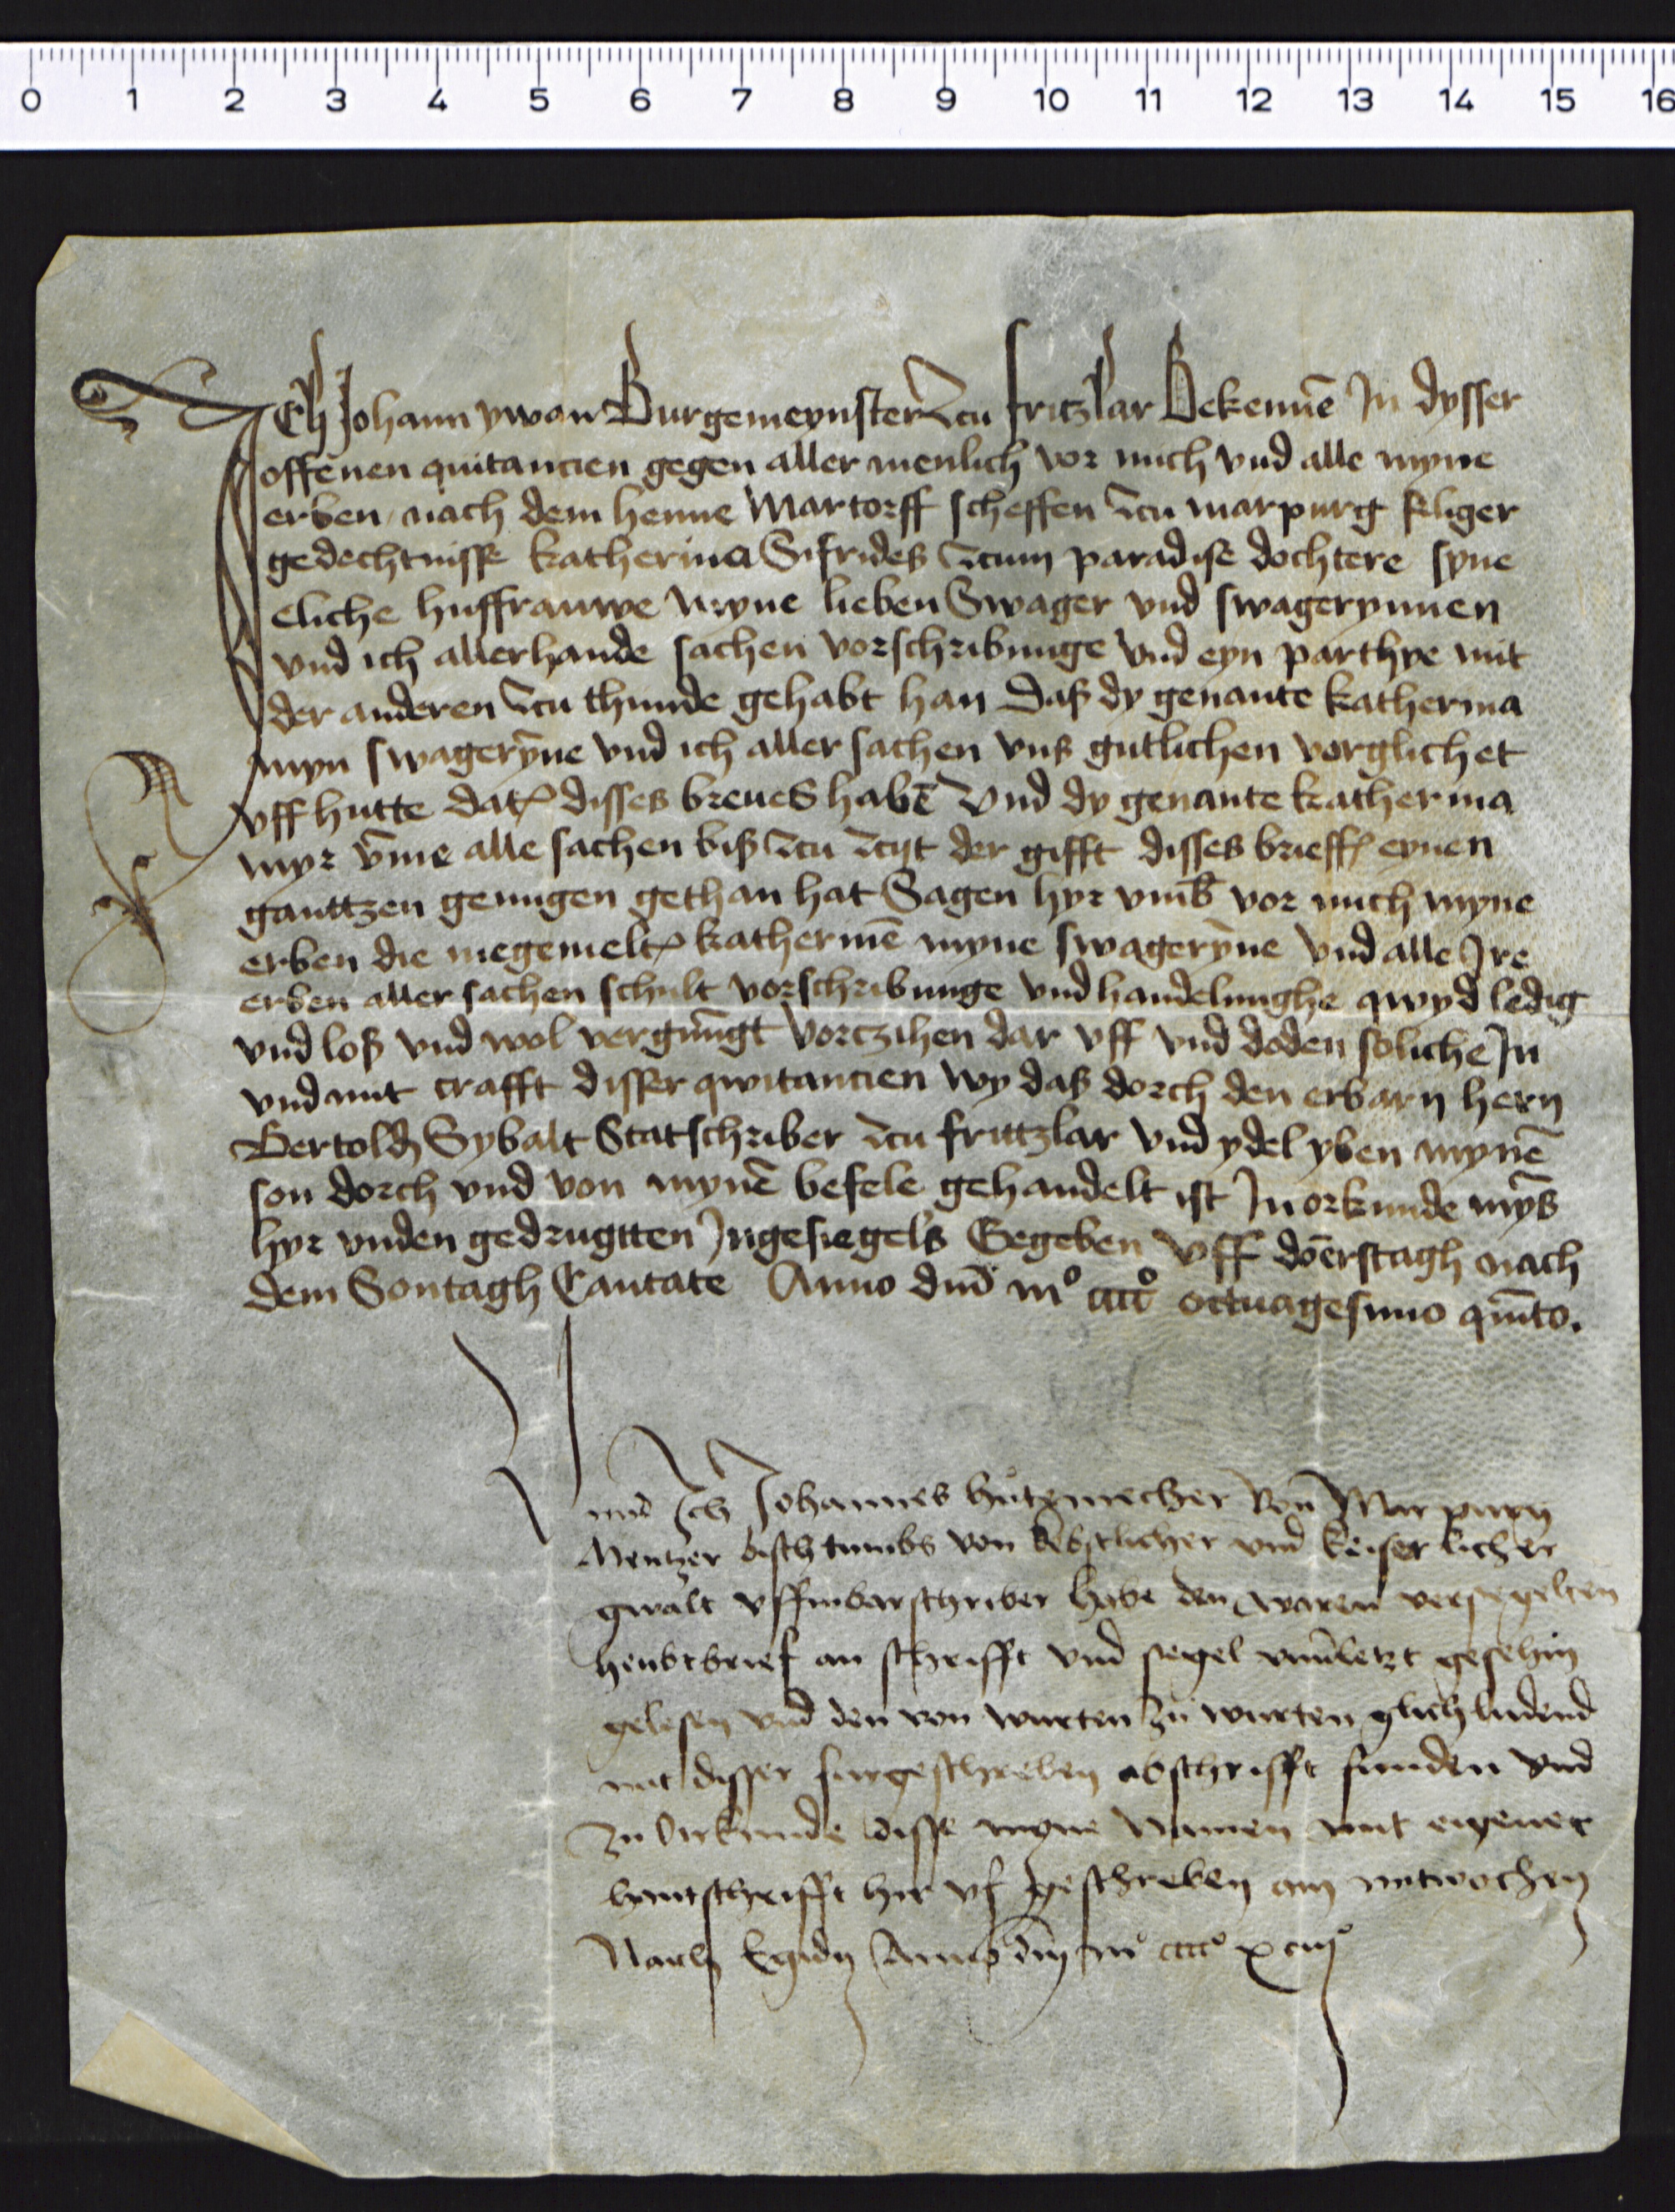 0 1 2 3 4 5 6 7 8 9 10 11 12 13 14 15 16
ICh Johann ywan Burgemeynster zcu fritzlar Bekenne͞ In dysser
offenen quitancien gegen aller menlich vor mich vnd alle myne
erben nach dem henne Martorff scheffen zcu marpurg seliger
gedechtnisse katherina Sifrides zcum paradise dochtere syne
eliche hussfrauwe myne lieben Swager vnd swagerynnen
vnd ich allerhande sachen vorschribunge vnd eyn parthye mit
der anderen zcu thunde gehabt han Daß dy genante katherina
myn swageryn̄e vnd ich aller sachen vnß gutlichen verglichet
vff hutte dat disses breues habe͞ Vnd dy genante katherina
myr vm̄e alle sachen biß zcu zcyt der gifft disses brieff eynen
ganttzen genugen gethan hat Sagen hyr vmb vor mich myne
erben die megemelt katherine͞ myne swageryn̄e vnd alle Ire
erben aller sachen schult vorschribunge vnd handelunghe qwyd ledig
vnd loß vnd wol vergnu͞gt vorczihen dar vff vnd doden soliche In
vnd mit crafft disser qwitancien wy daß dorch den erbarn hern
Bertold Sybalt Statschriber zcu fritzlar vnd ydel yben myne͞
son dorch vnd von myne͞ befele gehandelt ist In orkunde my͞s
hyr vnden gedrugtten Ingesiegels Gegeben vff do͞erstagh nach
dem Sontagh Cantate Anno dn͞i mº ccccº octuagesimo qui͞nto.
und Ich Johannes hutzmecher von Marpurg
Mentzer bisthtumbs von bebstlicher vnd keiserlicher
gwalt vffinbarschriber habe den waren versiegelten
heubtbrief an schrifft vnd siegel vnu͞letzt gesehin
gelesen vnd den von wurten zu wurten glich ludend
mit disser furgeschreben abschrifft funden vnd
zu Urkunde disse myne namen mit eigener
hantschrifft hir vf geschreben am mitwochen
Nach Egidy Anno dn͞i mº ccccº xciijº